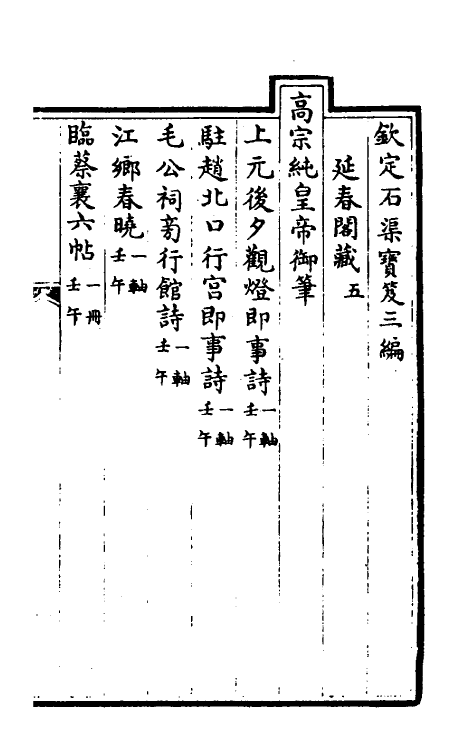 欽定石渠寶笈三編
延春閣藏五
高宗純皇帝御筆
上元後夕觀燈即事詩一軸壬午
駐趙北口行宮即事詩一軸壬午
毛公祠旁行館詩一軸壬午
江鄉春曉一軸壬午
臨蔡襄六帖一冊壬午